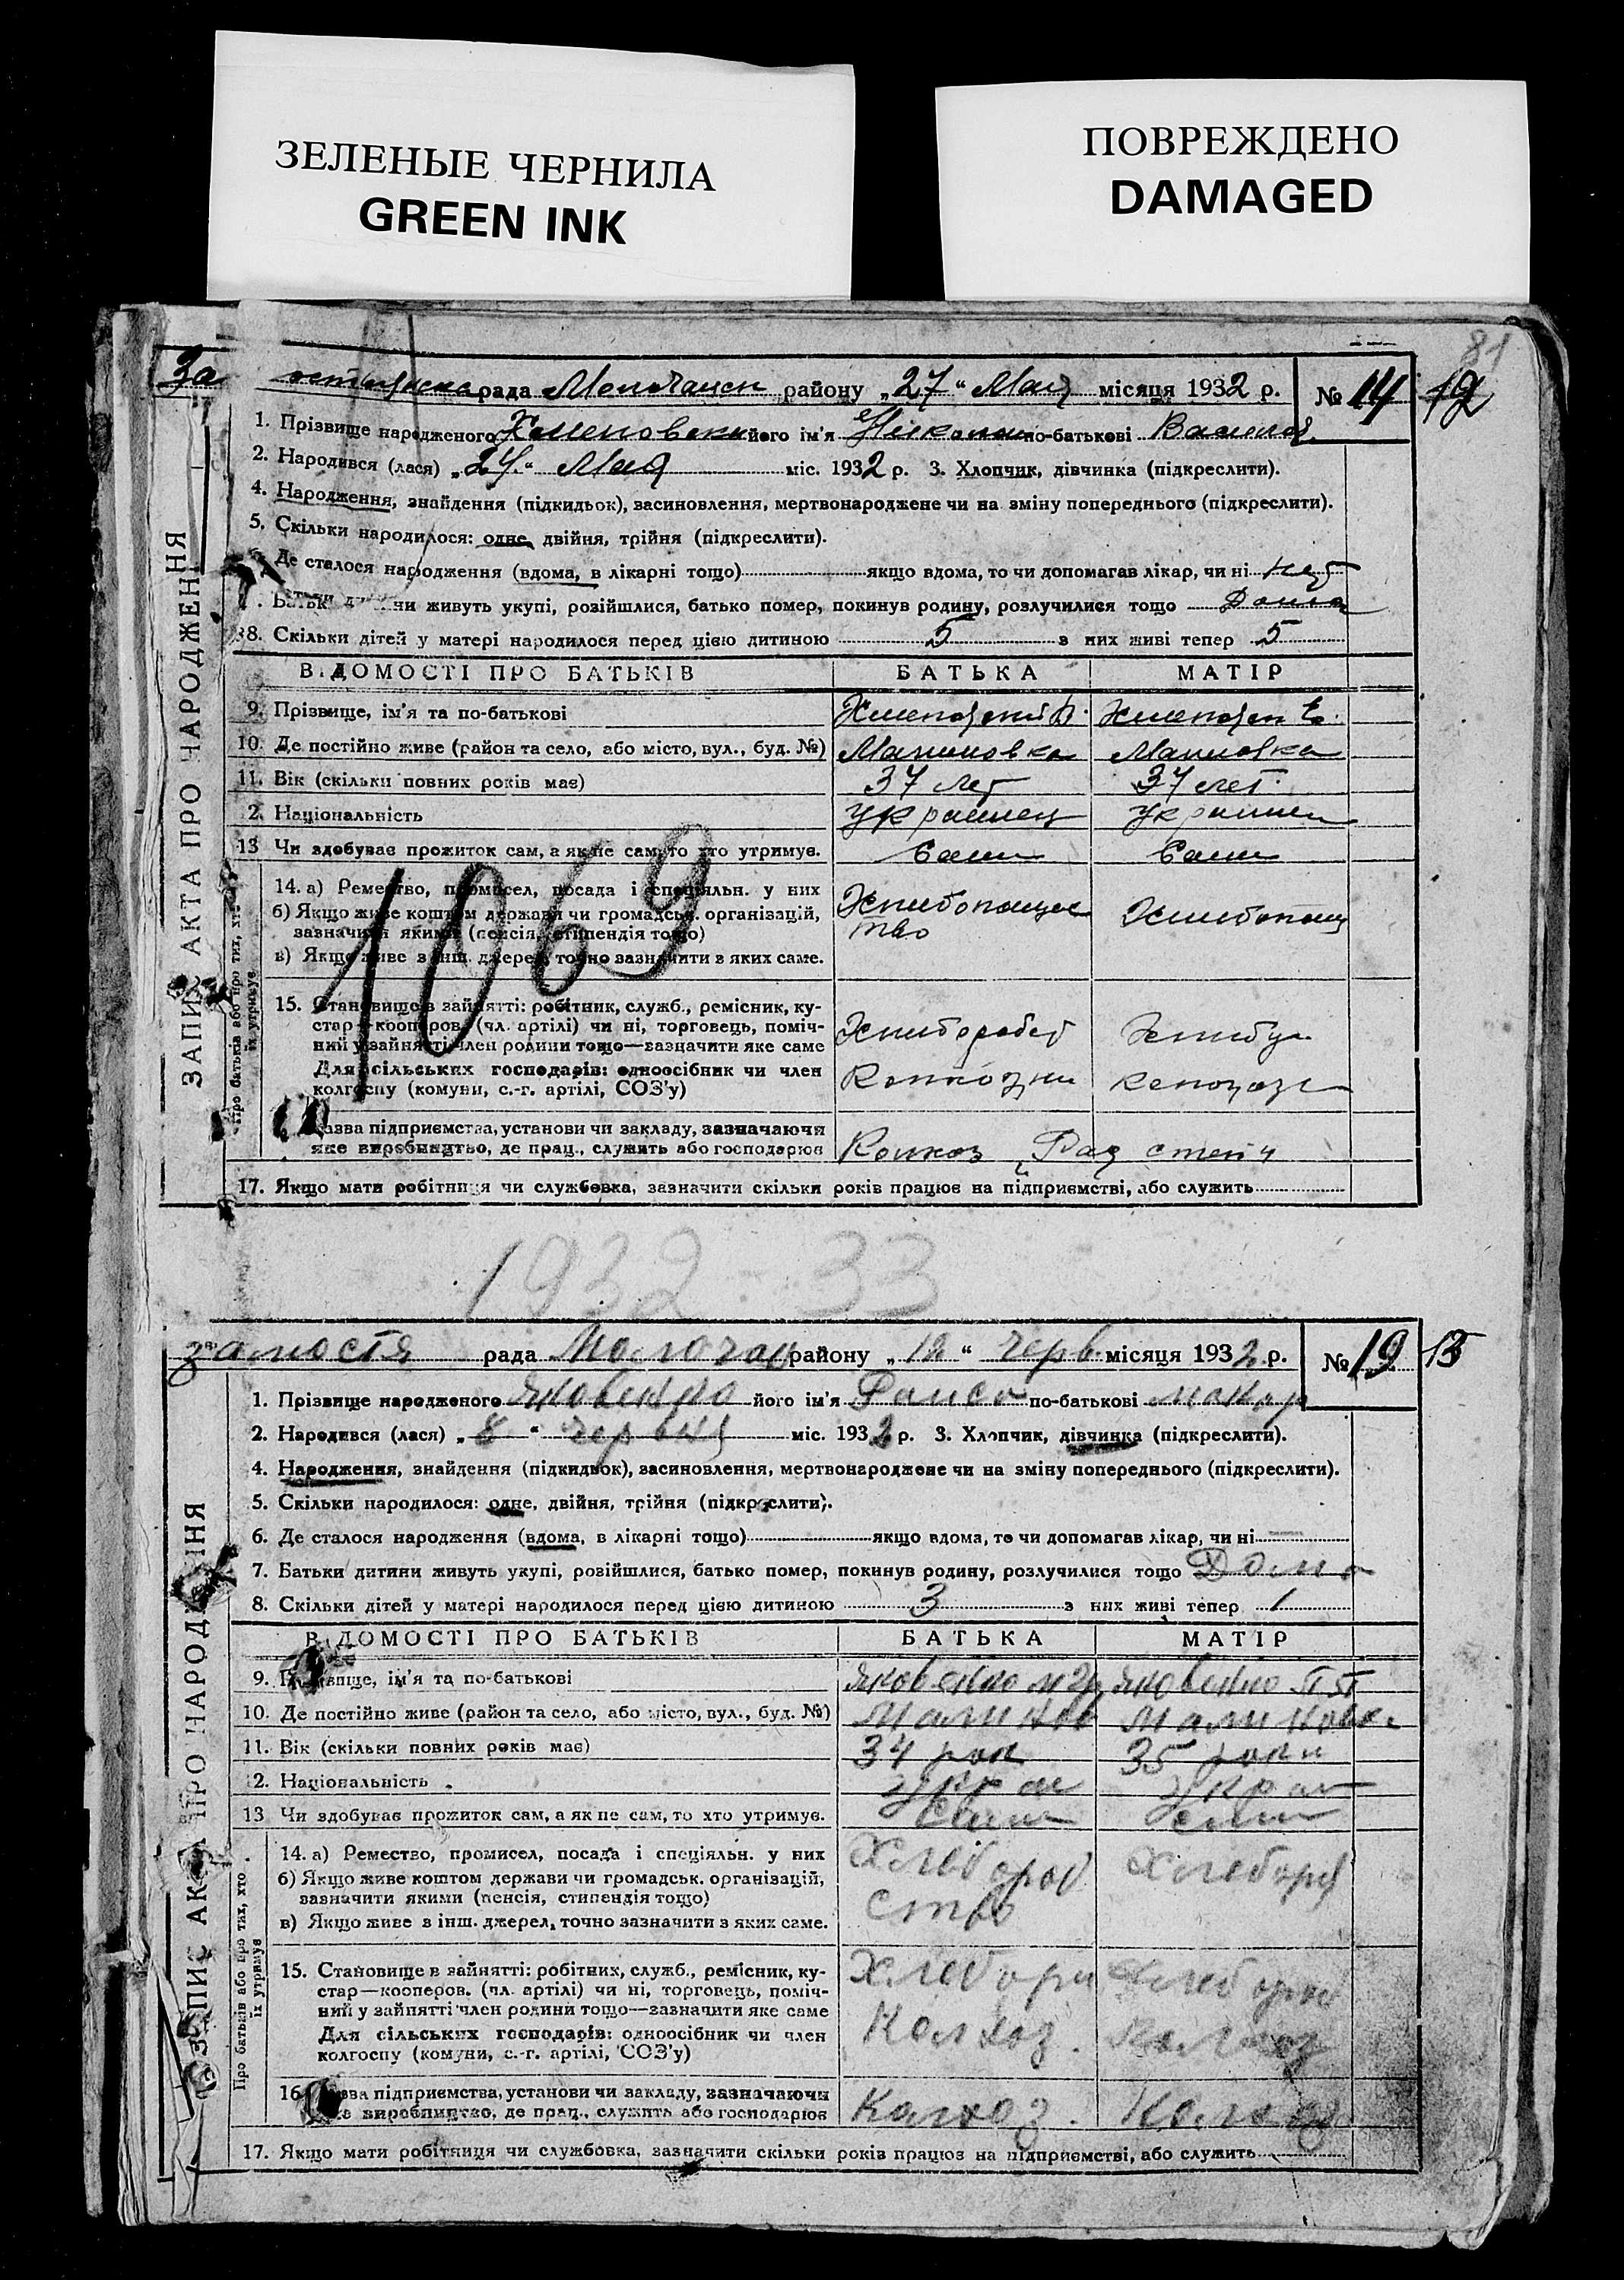 ЗЕЛЕНЫЕ ЧЕРНИЛА
GREEN INK
ПОВРЕЖДЕНО
DAMAGED
81
рада Молочанск району „27“ Мая місяця 1932 р. № 14 12
1. Прізвище народженого його ім'я Николай по-батькові Васильев
2. Народився (лася) „24“ Мая міс. 1932 р. 3. Хлопчик, дівчинка (підкреслити).
4. Народження, знайдення (підкидьок), засиновлення, мертвонароджене чи на зміну попереднього (підкреслити).
5. Скільки народилося: одне, двійня, трійня (підкреслити).
Де сталося народження (вдома, в лікарні тощо) якщо вдома, то чи допомагав лікар, чи ні нет
ни живуть укупі, розійшлися, батько помер, покинув родину, розлучилися тощо Дома
8. Скільки дітей у матері народилося перед цією дитиною 5 з них живі тепер 5
ВІДОМОСТІ ПРО БАТЬКІВ БАТЬКА МАТІР
9. Прізвище, ім'я та по-батькові
10. Де постійно живе (район та село, або місто, вул., буд. №) Малиновка Малиновка
11. Вік (скільки повних років має) 37 лет 37 лет
2. Національність Украинец Украин
13 Чи здобуває прожиток сам, а як не сам, то хто утримує. Сами Сами
14. а) Ремество, промисел, посада і спеціяльн. у них
б) Якщо живе коштом держави чи громадськ. організацій,
зазначити якими (пенсія, стипендія тощо)
в) Якщо живе з інш. джерел, точно зазначити з яких саме.
15. Становище в зайнятті: робітник, служб., ремісник, ку-
стар—кооперов. (чл. артілі) чи ні, торговець, поміч-
ний у зайнятті член родини тощо—зазначити яке саме
Для сільських господарів: одноосібник чи член
колгоспу (комуни, с.-г. артілі, СОЗ'у)
азва підприємства, установи чи закладу, зазначаючи
яке виробництво, де прац., служить або господарює Колхоз
17. Якщо мати робітниця чи службовка, зазначити скільки років працює на підприємстві, або служить
ЗАПИС АКТА ПРО НАРОДЖЕННЯ
Про батьків або про тих, хто
їх утримує
1069
1932-33
замостя рада Молочан району „12“ черв. місяця 1932 р. № 19 13
1. Прізвище народженого Яковенко його ім'я Раиса по-батькові Макар
2. Народився (лася) „8“ червня міс. 1932 р. 3. Хлопчик, дівчинка (підкреслити).
4. Народження, знайдення (підкидьок), засиновлення, мертвонароджене чи на зміну попереднього (підкреслити).
5. Скільки народилося: одне, двійня, трійня (підкреслити).
6. Де сталося народження (вдома, в лікарні тощо) якщо вдома, то чи допомагав лікар, чи ні
7. Батьки дитини живуть укупі, розійшлися, батько помер, покинув родину, розлучилися тощо Дома
8. Скільки дітей у матері народилося перед цією дитиною 3 з них живі тепер 1
ВІДОМОСТІ ПРО БАТЬКІВ БАТЬКА МАТІР
9. Прізвище, ім'я та по-батькові Яковенко Яковенко
10. Де постійно живе (район та село, або місто, вул., буд. №) Малинов Малиновк
11. Вік (скільки повних років має) 34 рок 35 роки
12. Національність Украи Украи
13 Чи здобуває прожиток сам, а як не сам, то хто утримує. Сами Сами
14. а) Ремество, промисел, посада і спеціяльн. у них
б) Якщо живе коштом держави чи громадськ. організацій,
зазначити якими (пенсія, стипендія тощо)
в) Якщо живе з інш. джерел, точно зазначити з яких саме.
Хлебороб
ство
Хлебороб
15. Становище в зайнятті: робітник, служб., ремісник, ку-
стар—кооперов. (чл. артілі) чи ні, торговець, поміч-
ний у зайнятті член родини тощо—зазначити яке саме
Для сільських господарів: одноосібник чи член
колгоспу (комуни, с.-г. артілі, СОЗ'у)
Колхоз. Колхоз
16 зва підприємства, установи чи закладу, зазначаючи
яке виробництво, де прац., служить або господарює Колхоз. Колхоз
17. Якщо мати робітниця чи службовка, зазначити скільки років працює на підприємстві, або служить
ЗАПИС АКТА ПРО НАРОДЖЕННЯ
Про батьків або про тих, хто
їх утримує